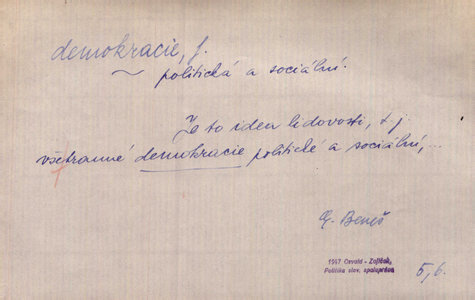 demokracie, f.
politická a sociální.
Je to idea lidovosti, t. j.
všetranné demokracie politické a sociální,...
E. Beneš
1947 Osvald - Zajíček,
Politika slov. spolupráce
5, 6.